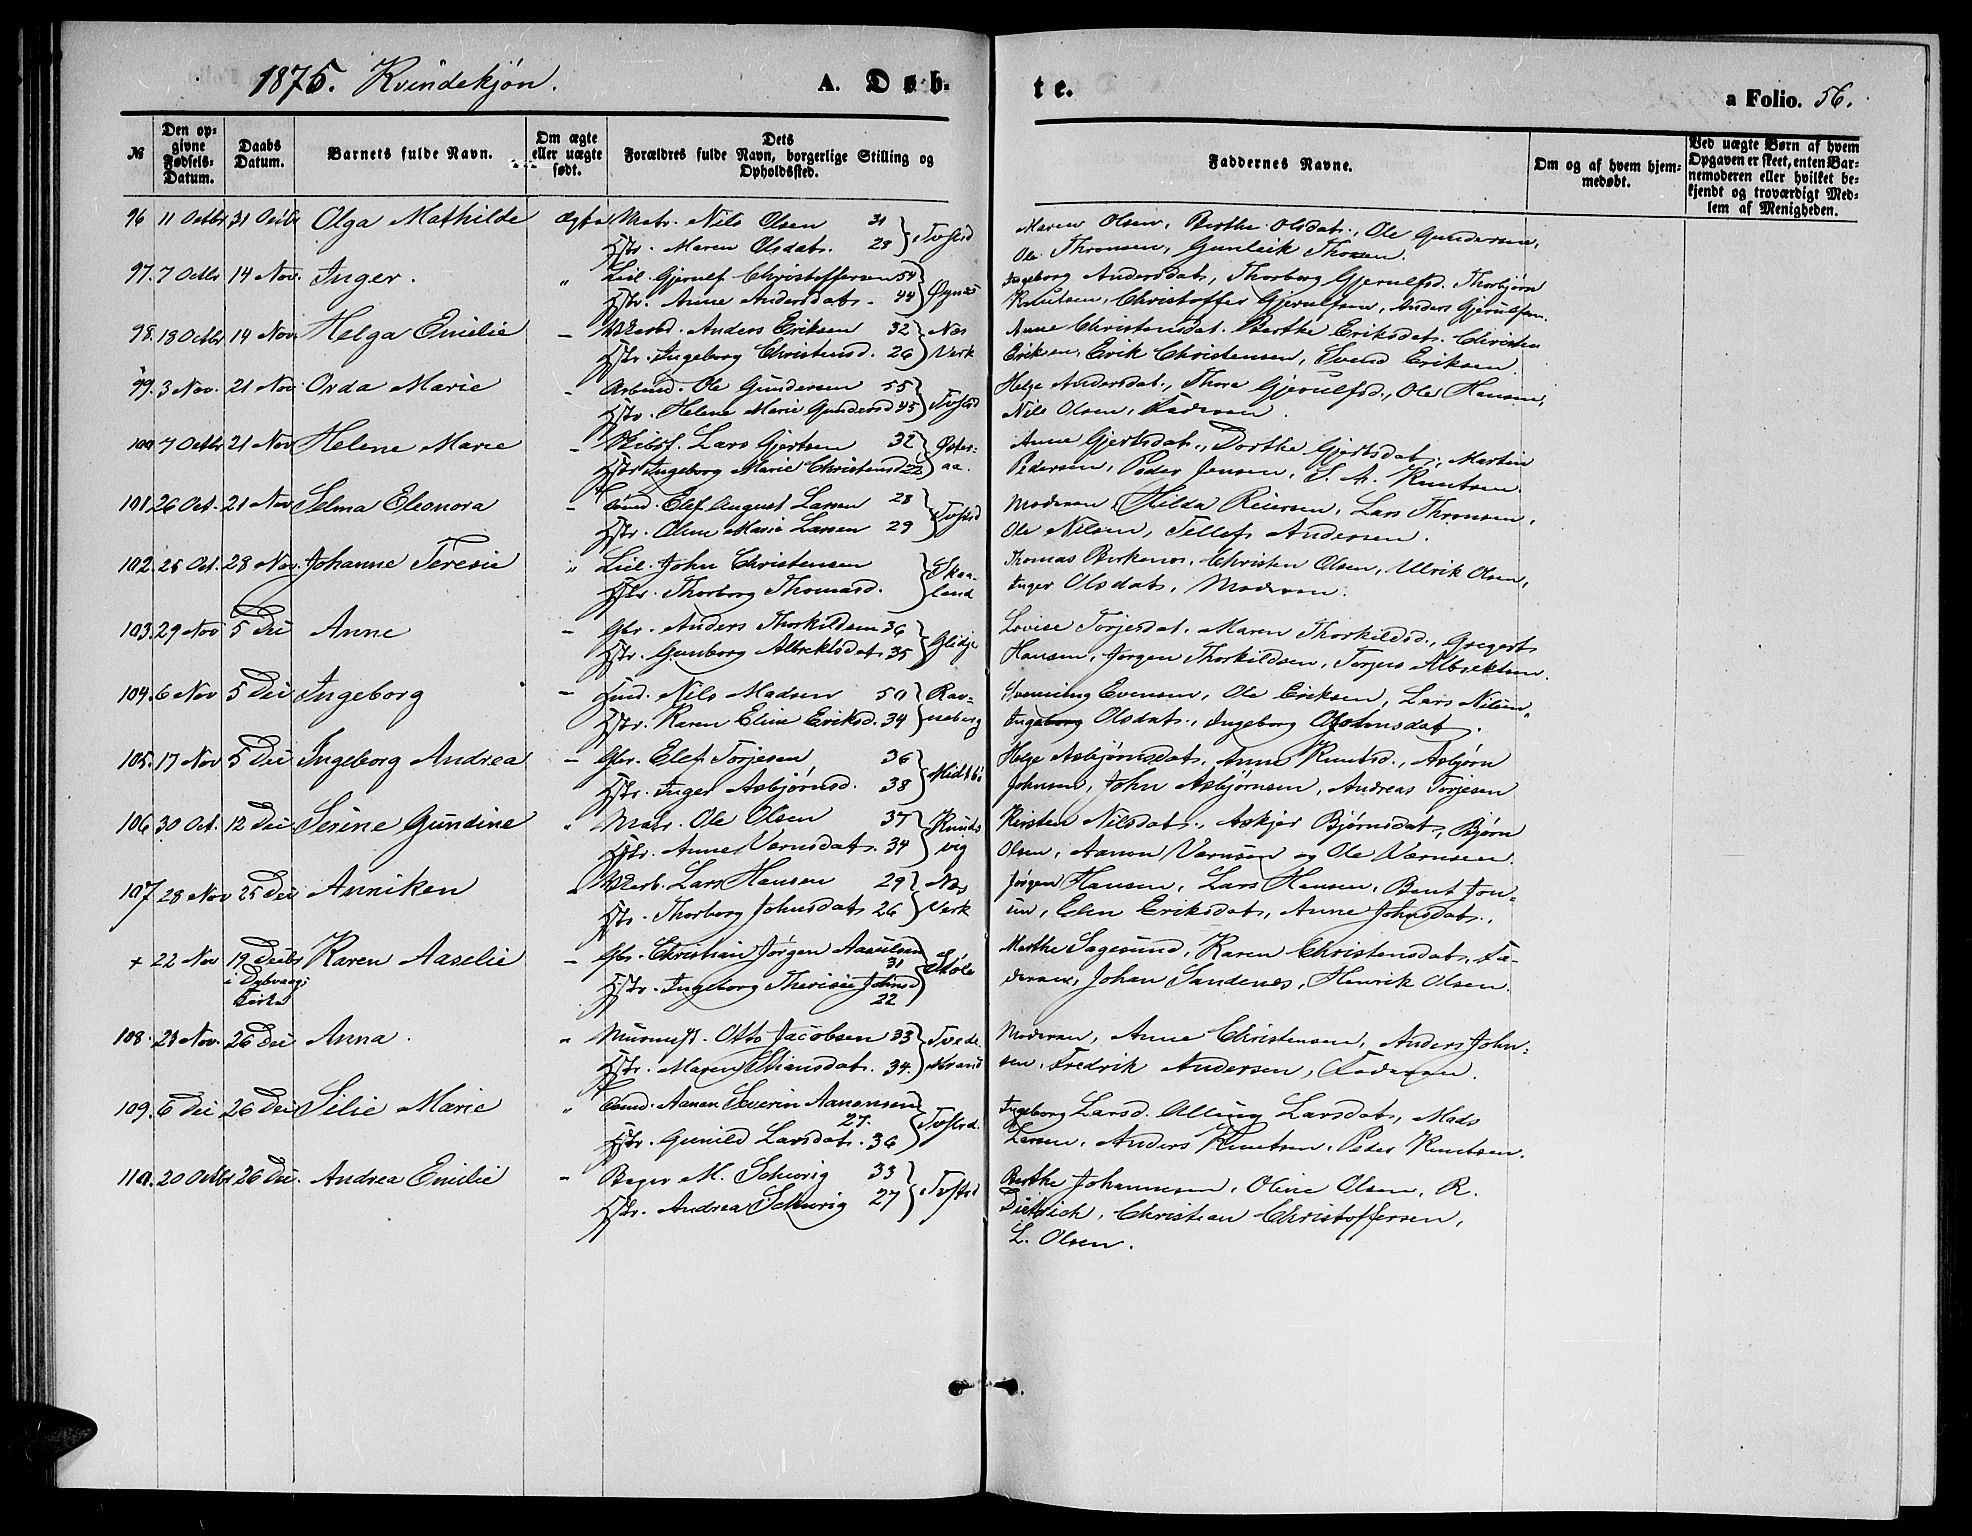 1875. Kvindekjøn.
A. Døb-
te.
a Folio. 56.
№
Den opgivne Fødsels-Datum.
Daabs Datum.
Barnets fulde Navn.
Om ægte eller uægte født.
Dets Forældres fulde Navn, borgerlige Stilling og Opholdssted.
Faddernes Navne.
Om og af hvem hjemmedøbt.
Ved uægte Børn af hvem Opgaven er skeet, enten Barnemoderen eller hvilket bekjendt og troværdigt Medlem af Menigheden.
96 11 Octbr 31 Octbr Olga Mathilde ægte Matr. Nils Olsen 31
Hstr. Maren Olsdat. 28 Tvedestrd
Maren Olsen, Berthe Olsdat., Ole Gundersen,
Ole Thronsen, Gunleik Thorsen.
97. 7 Octbr 14 Nov. Inger. " Leil. Gjerulf Christoffersen 54
Hstr. Anne Andersdat. 44 Øynes
Ingeborg Andersdat, Thorborg Gjerulfsd. Thorbjørn
Knutsen, Christoffer Gjerulfsen, Anders Gjerulfsen.
98. 18 Octbr 14 Nov Helga Emilie - Anders Eriksen 32 Nes
Hstr. Ingeborg Christensd. 26 Verk
Anne Christensdat. Berthe Eriksdat. Christen
Eriksen, Erik Christensen, Svend Eriksen.
99. 3 Nov. 21 Nov. Orda Marie - Arbmd. Ole Gundersen 55
Hstr. Helene Marie Gundersd 45
Helge Andersdat., Thora Gjerulfsd., Ole Hansen,
Nils Olsen, Faderen.
100 7 Octbr 21 Nov Helene Marie - Skibsf. Lars Gjertsen 32 Øster-
Hstr Ingeborg Marie Christensd 22 aa.
Anne Gjertsdat., Dorthe Gjertsdat., Martin
Pedersen, Peder Jensen, S. A. Knutsen.
101. 26 Oct. 21 Nov Selma Eleonora - Tømd. Elef August Larsen 28
Hstr. Oline Marie Larsen 29
Moderen, Hilda Reiersen, Lars Thronsen,
Ole Nilsen, Tellef Andersen.
102. 25 Oct. 28 Nov. Johanne Teresie " Leil. John Christensen Skaa-
Hstr. Thorborg Thomasd. land
Thomas Birkenes, Christen Olsen, Ulrik Olsen,
Inger Olsdat, Moderen.
103. 29 Nov 5 Dec Anne - Gbr. Anders Thorkildsen 36
Hstr. Gunborg Albrektsdat. 35 Glidje
Lovise Torjesdat. Maren Thorkildsd., Gregert
Hansen, Jørgen Thorkildsen, Torjus Albrektsen.
104. 6 Nov 5 Dec Ingeborg - Nils Madsen 50 Rav-
Hstr. Karen Eline Eriksd. 34 neberg
Svenning Evensen, Ole Eriksen, Lars Nilsen,
Ingeborg Olsdat., Ingeborg Johnsdat.
105. 17 Nov 5 Dec Ingeborg Andrea - Gbr. Elef Torjesen 36
Hstr. Inger Asbjørnsd. 38 Midtbø
Helge Asbjørnsdat, Anne Knutsd., Asbjørn
Johnsen, John Asbjørnsen, Andreas Torjesen
106 30 Oct. 12 Dec. Serine Gundine " Matr. Ole Olsen 37 Knuds
Hstr. Anne Vernsdat. 34 vig
Kirsten Nilsdat., Askjer Bjørnsdat, Bjørn
Olsen, Aanon Vernsen og Ole Vernsen.
107 28 Nov 25 Dec Anniken " Lars Hansen 29 Nes
Hstr. Thorborg Johnsdat 26 Verk
Jørgen Hansen, Lars Hansen, Bent Jon-
sen, Elen Eriksdat, Anne Johnsdat.
+ 22 Nov 19 Decbr Karen Aaselie - Gbr. Christian Jørgen Aasulsen
i Dybvaag 31
Kirke Hstr. Ingeborg Theresie Johnsd
22
Marthe Sagesund, Karen Christensdat, Fa-
deren, Johan Sandenes, Henrik Olsen.
108. 23 Nov. 26 Dec Anna. " Murmest. Otto Jacobsen 33 Tvede-
Hstr. Maren Stiansdat. 34. strand
Moderen, Anne Christensen, Anders John-
sen, Fredrik Andersen, Faderen.
109. 6 Dec 26 Dec Silie Marie " Tømd. Aanen Severin Aanonsen
27.
Hstr. Gunild Larsdat. 36
Ingeborg Larsd. Alling Larsdat, Mads
Larsen, Anders Knutsen, Peder Knutsen.
110. 20 Octbr 26 Dec. Andrea Emilie - Bager M. Schwrig 33
Hstr. Andrea Schwrig 27
Berthe Johannesen, Oline Olsen, R.
Dietrich, Christian Christoffersen,
L. Olsen.